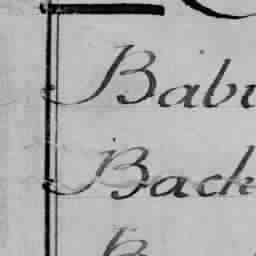 Babi
Back